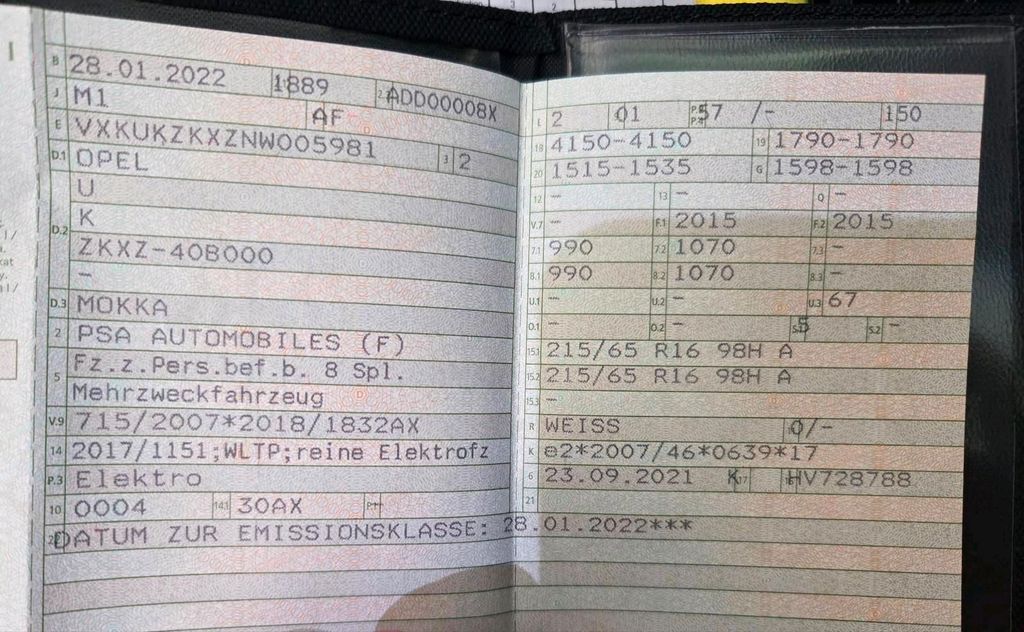 B 28.01.2022 1889 2.2 ADD00008X
J M1 AF
E VXKUKZKXZNW005981 3 2
D.1 OPEL
U
D.2 K
ZKXZ-40B000
-
D.3 MOKKA
2 PSA AUTOMOBILES (F)
5 Fz.z.Pers.bef.b. 8 Spl.
Mehrzweckfahrzeug
V.9 715/2007*2018/1832AX
14 2017/1151;WLTP;reine Elektrofz
P.3 Elektro
10 0004 14.1 30AX P.1 -
DATUM ZUR EMISSIONSKLASSE: 28.01.2022***
L 2 01 P.2 P.4 57 /- 150
18 4150-4150 19 1790-1790
20 1515-1535 G 1598-1598
12 - 13 - Q -
V.7 - F.1 2015 F.2 2015
7.1 990 7.2 1070 7.3 -
8.1 990 8.2 1070 8.3 -
U.1 - U.2 - U.3 67
O.1 - O.2 - S.1 5 S.2 -
15.1 215/65 R16 98H A
15.2 215/65 R16 98H A
15.3 -
R WEISS 0/-
K e2*2007/46*0639*17
6 23.09.2021 17 K 16 HV728788
21